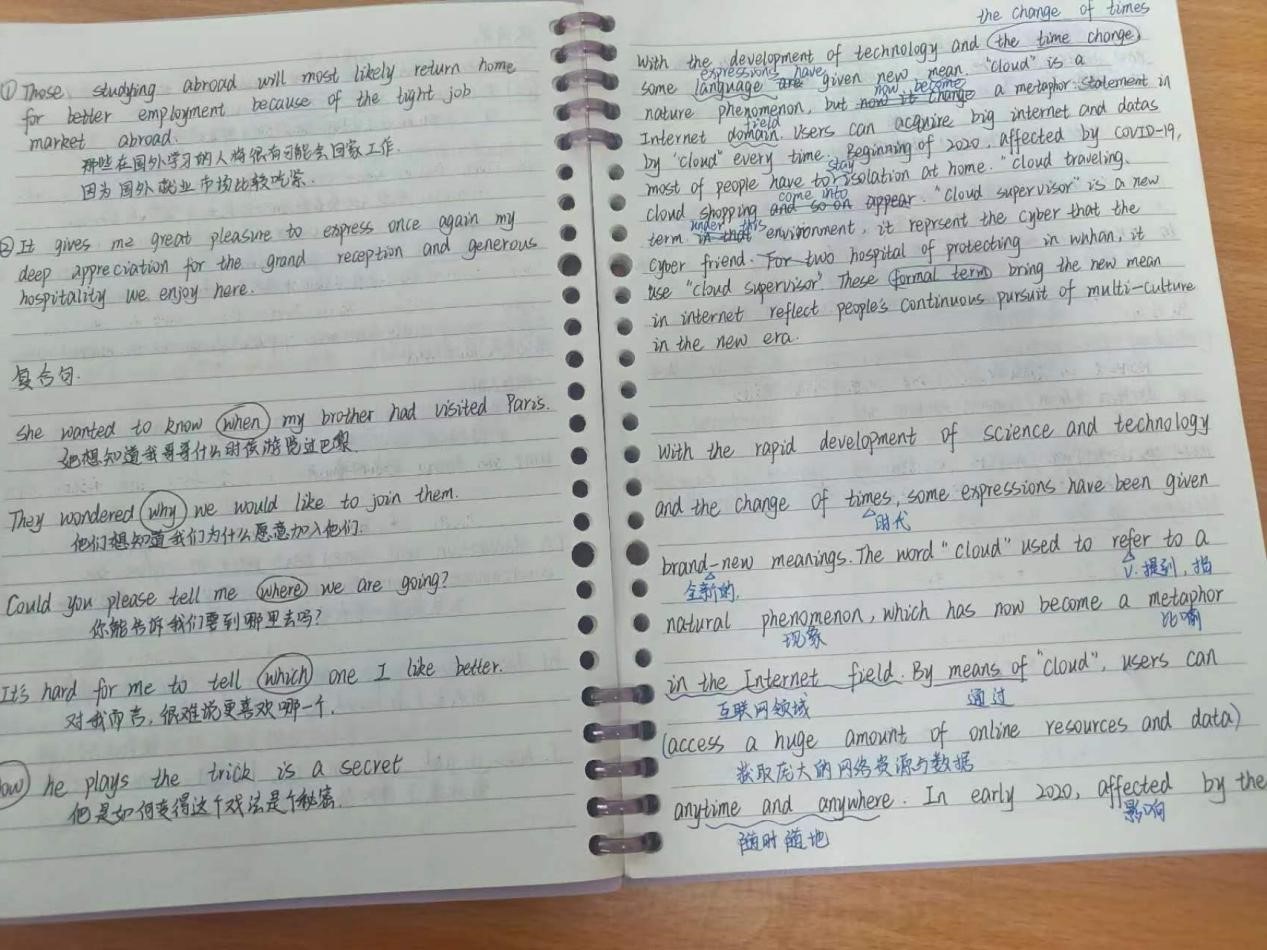 ① Those studying abroad will most likely return home
for better employment because of the tight job
market abroad.
那些在国外学习的人将很有可能会回家工作.
因为国外就业市场比较吃紧.
② It gives me great pleasure to express once again my
deep appreciation for the grand reception and generous
hospitality we enjoy here.
复合句.
She wanted to know when my brother had visited Paris.
她想知道我哥哥什么时侯游览过巴黎.
They wondered why we would like to join them.
他们想知道我们为什么愿意加入他们.
Could you please tell me where we are going?
你能告诉我们要到哪里去吗?
It's hard for me to tell which one I like better.
对我而言,很难说更喜欢哪一个.
he plays the trick is a secret
他是如何变得这个戏法是个秘密.
the change of times
With the development of technology and the time change
expressions have
some language are given new mean. "cloud" is a
now become
nature phenomenon, but now it change a metaphor statement in
field
Internet domain. Users can acquire big internet and datas
by "cloud" every time. Beginning of 2020, affected by COVID-19,
stay
most of people have to isolation at home. "Cloud traveling,
come into
cloud shopping and so on appear. "Cloud supervisor" is a new
under this
term in that environment, it reprsent the cyber that the
cyber friend. For two hospital of protecting in wuhan, it
use "cloud supervisor". These formal term bring the new mean
in internet reflect people's continuous pursuit of multi-culture
in the new era.
With the rapid development of science and technology
and the change of times, some expressions have been given
时代
brand-new meanings. The word "cloud" used to refer to a
全新的. v.提到,指
natural phenomenon, which has now become a metaphor
现象 比喻
in the Internet field. By means of "cloud", users can
互联网领域 通过
(access a huge amount of online resources and data)
获取庞大的网络资源与数据
anytime and anywhere. In early 2020, affected by the
随时随地 影响